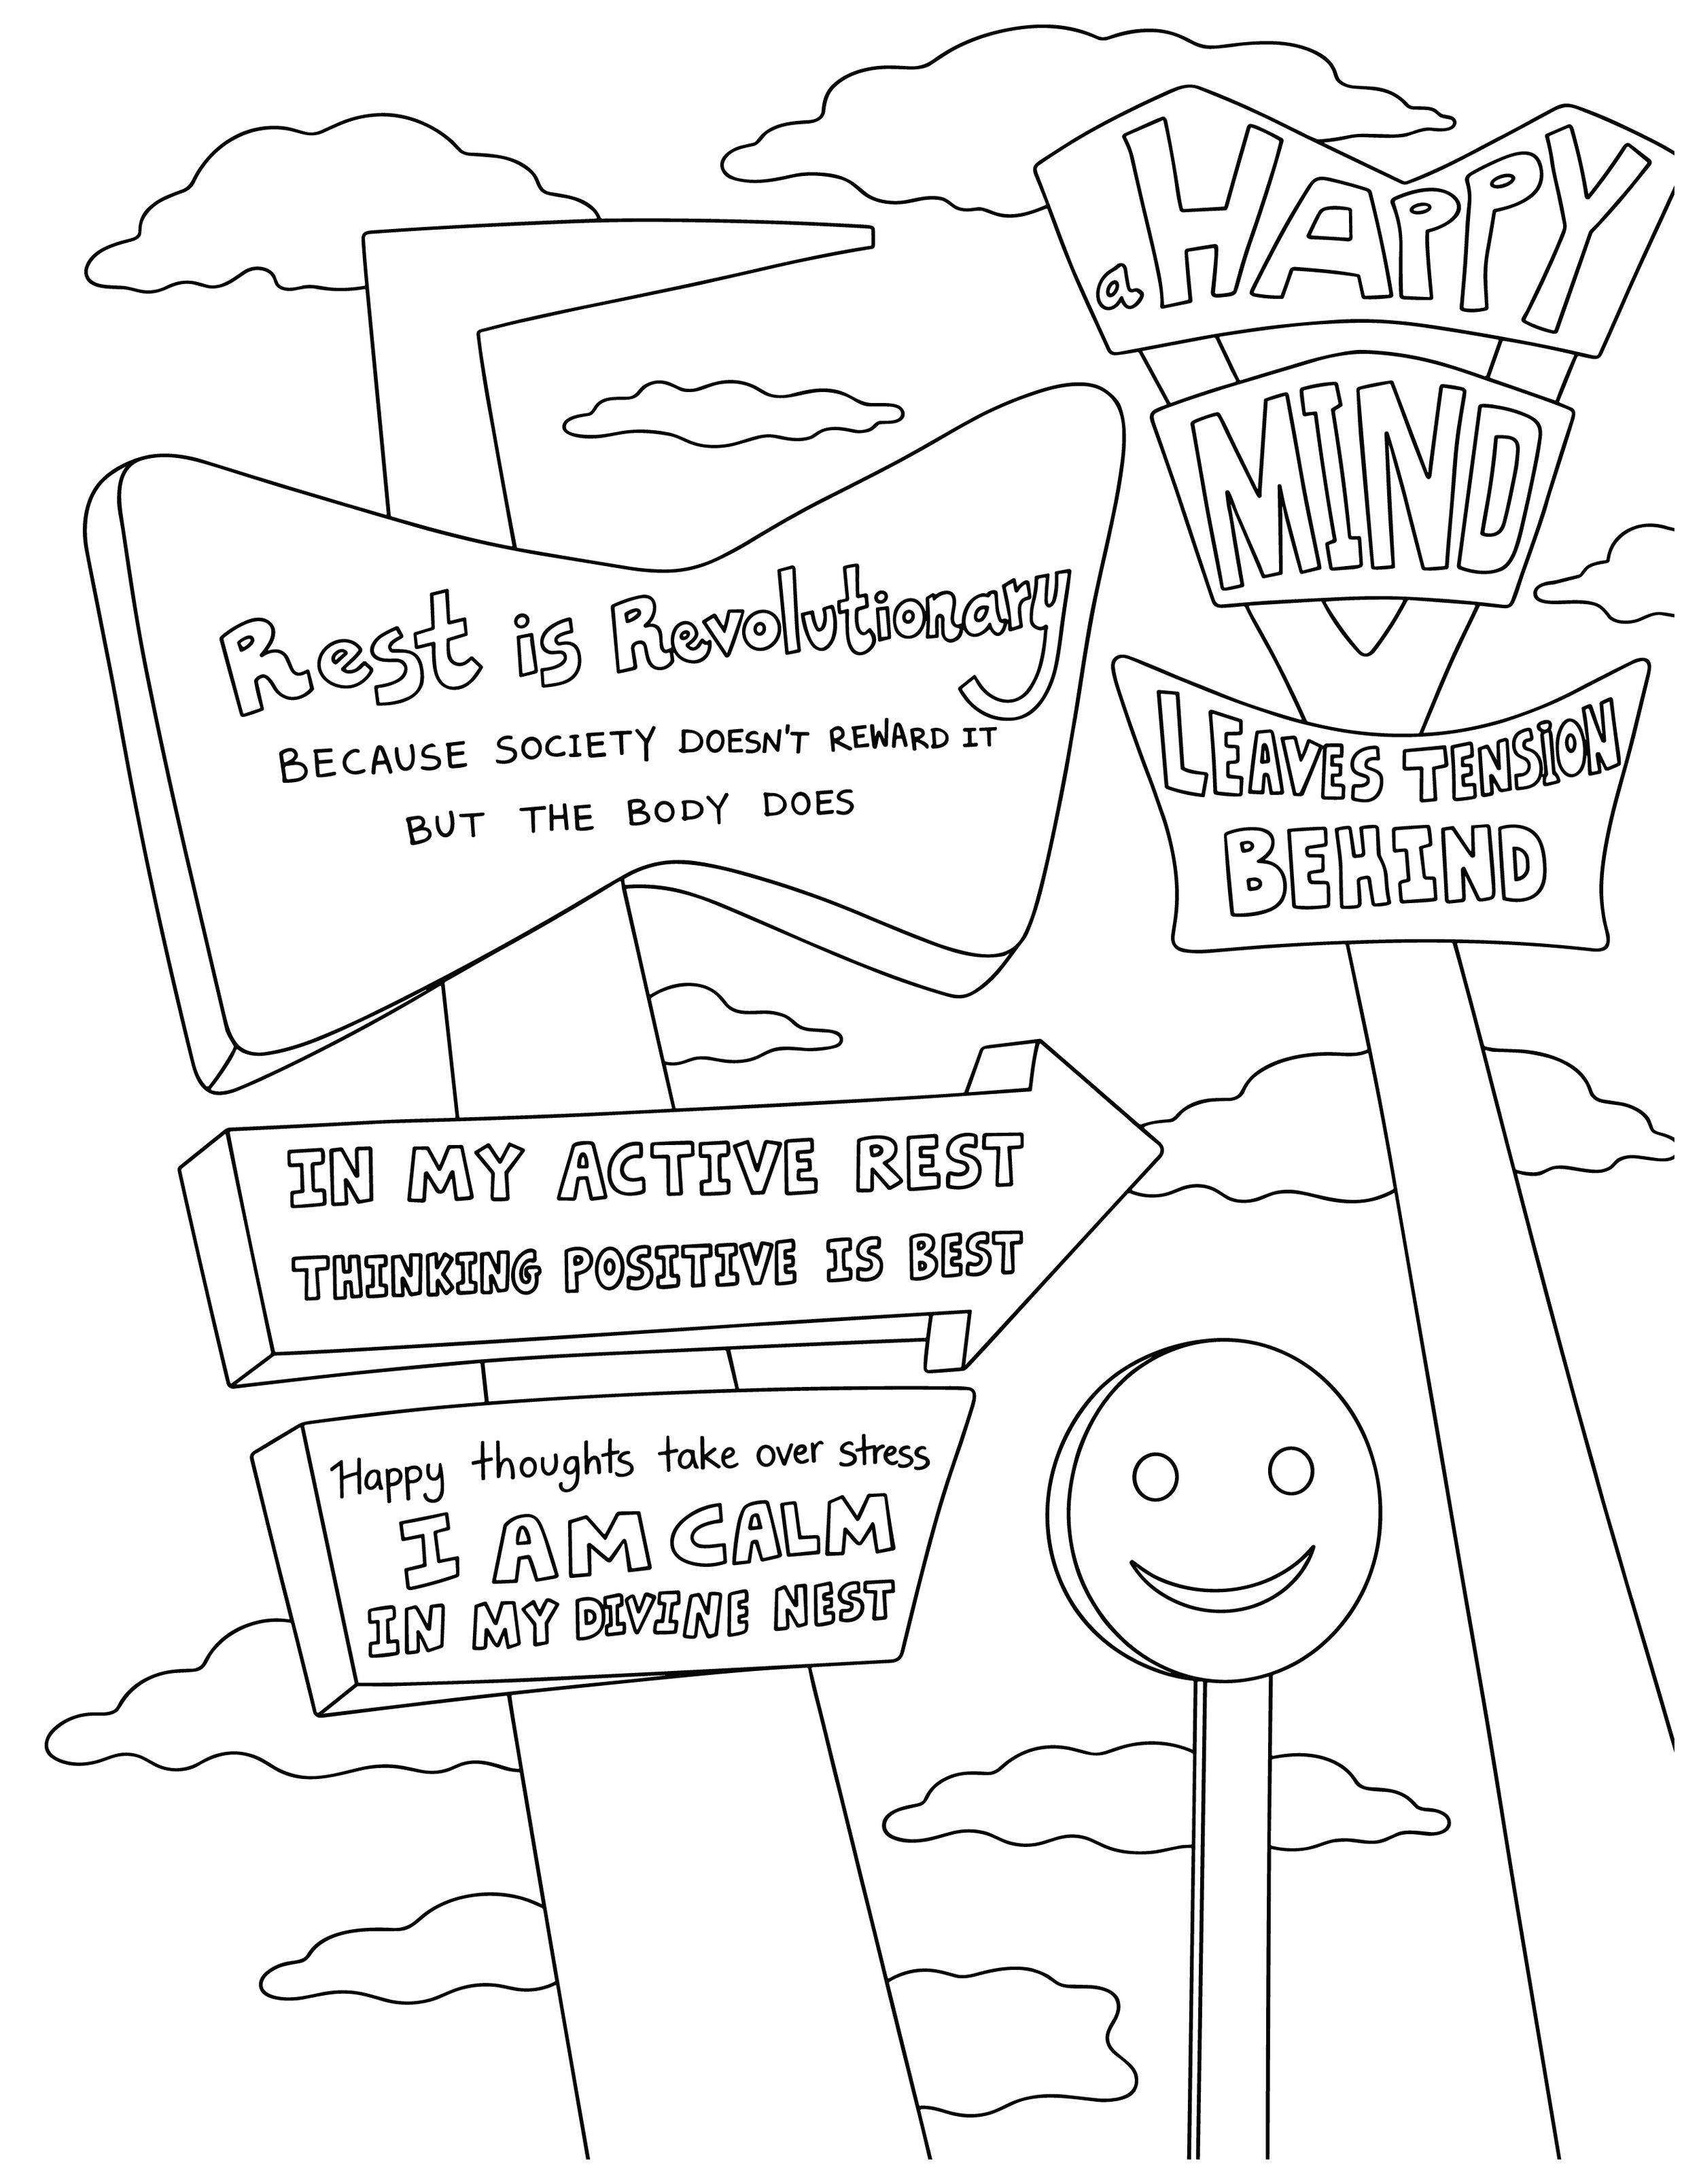 a HAPPY
MIND
LEAVES TENSION
BEHIND
Rest is Revolutionary
BECAUSE SOCIETY DOESN'T REWARD IT
BUT THE BODY DOES
IN MY ACTIVE REST
THINKING POSITIVE IS BEST
Happy thoughts take over stress
I AM CALM
IN MY DIVINE NEST